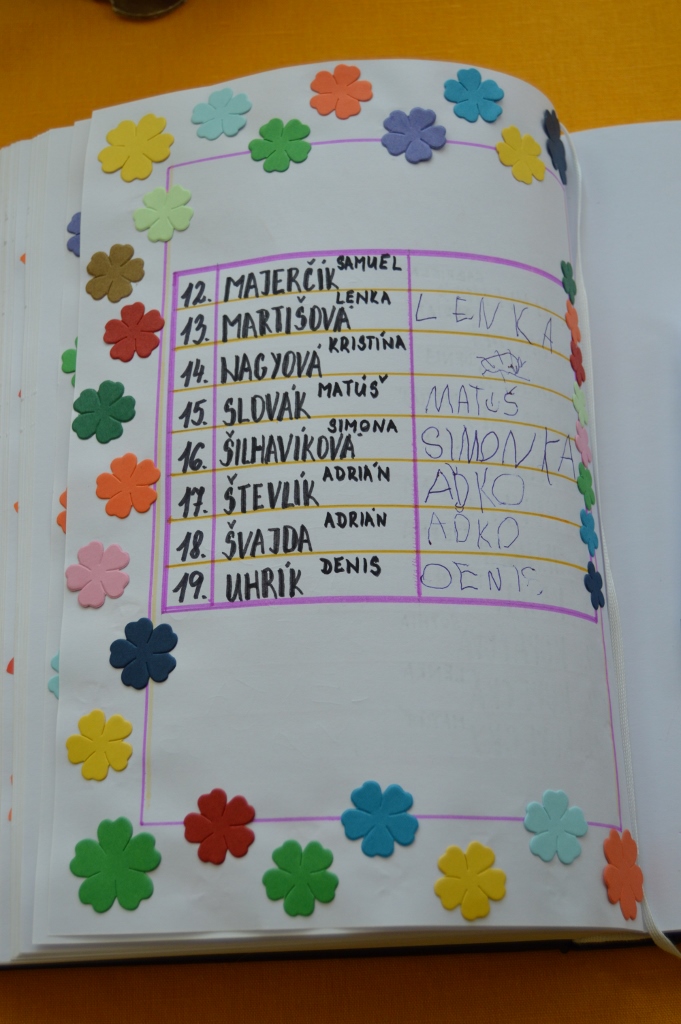 12. MAJERČÍK SAMUEL
13. MARTIŠOVÁ LENKA LENKA
14. NAGYOVÁ KRISTÍNA
15. SLOVÁK MATÚŠ MATUŠ
16. ŠILHAVÍKOVÁ SIMONA SIMONKA
17. ŠTEVLÍK ADRIÁN ADKO
18. ŠVAJDA ADRIÁN ADKO
19. UHRÍK DENIS DENIS